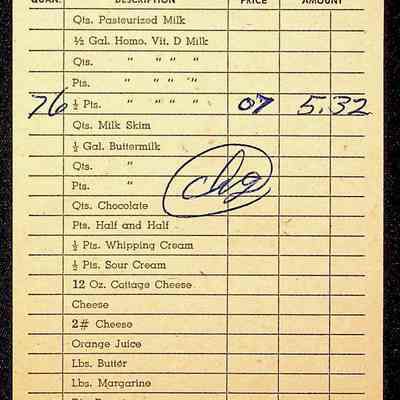 QUAN. DESCRIPTION PRICE AMOUNT
Qts. Pasteurized Milk
½ Gal. Homo. Vit. D Milk
Qts. " " " "
Pts. " " " "
76 ½ Pts. " " " " 07 5.32
Qts. Milk Skim
½ Gal. Buttermilk
Qts. "
Pts. "
Chg
Qts. Chocolate
Pts. Half and Half
½ Pts. Whipping Cream
½ Pts. Sour Cream
12 Oz. Cottage Cheese
Cheese
2# Cheese
Orange Juice
Lbs. Butter
Lbs. Margarine